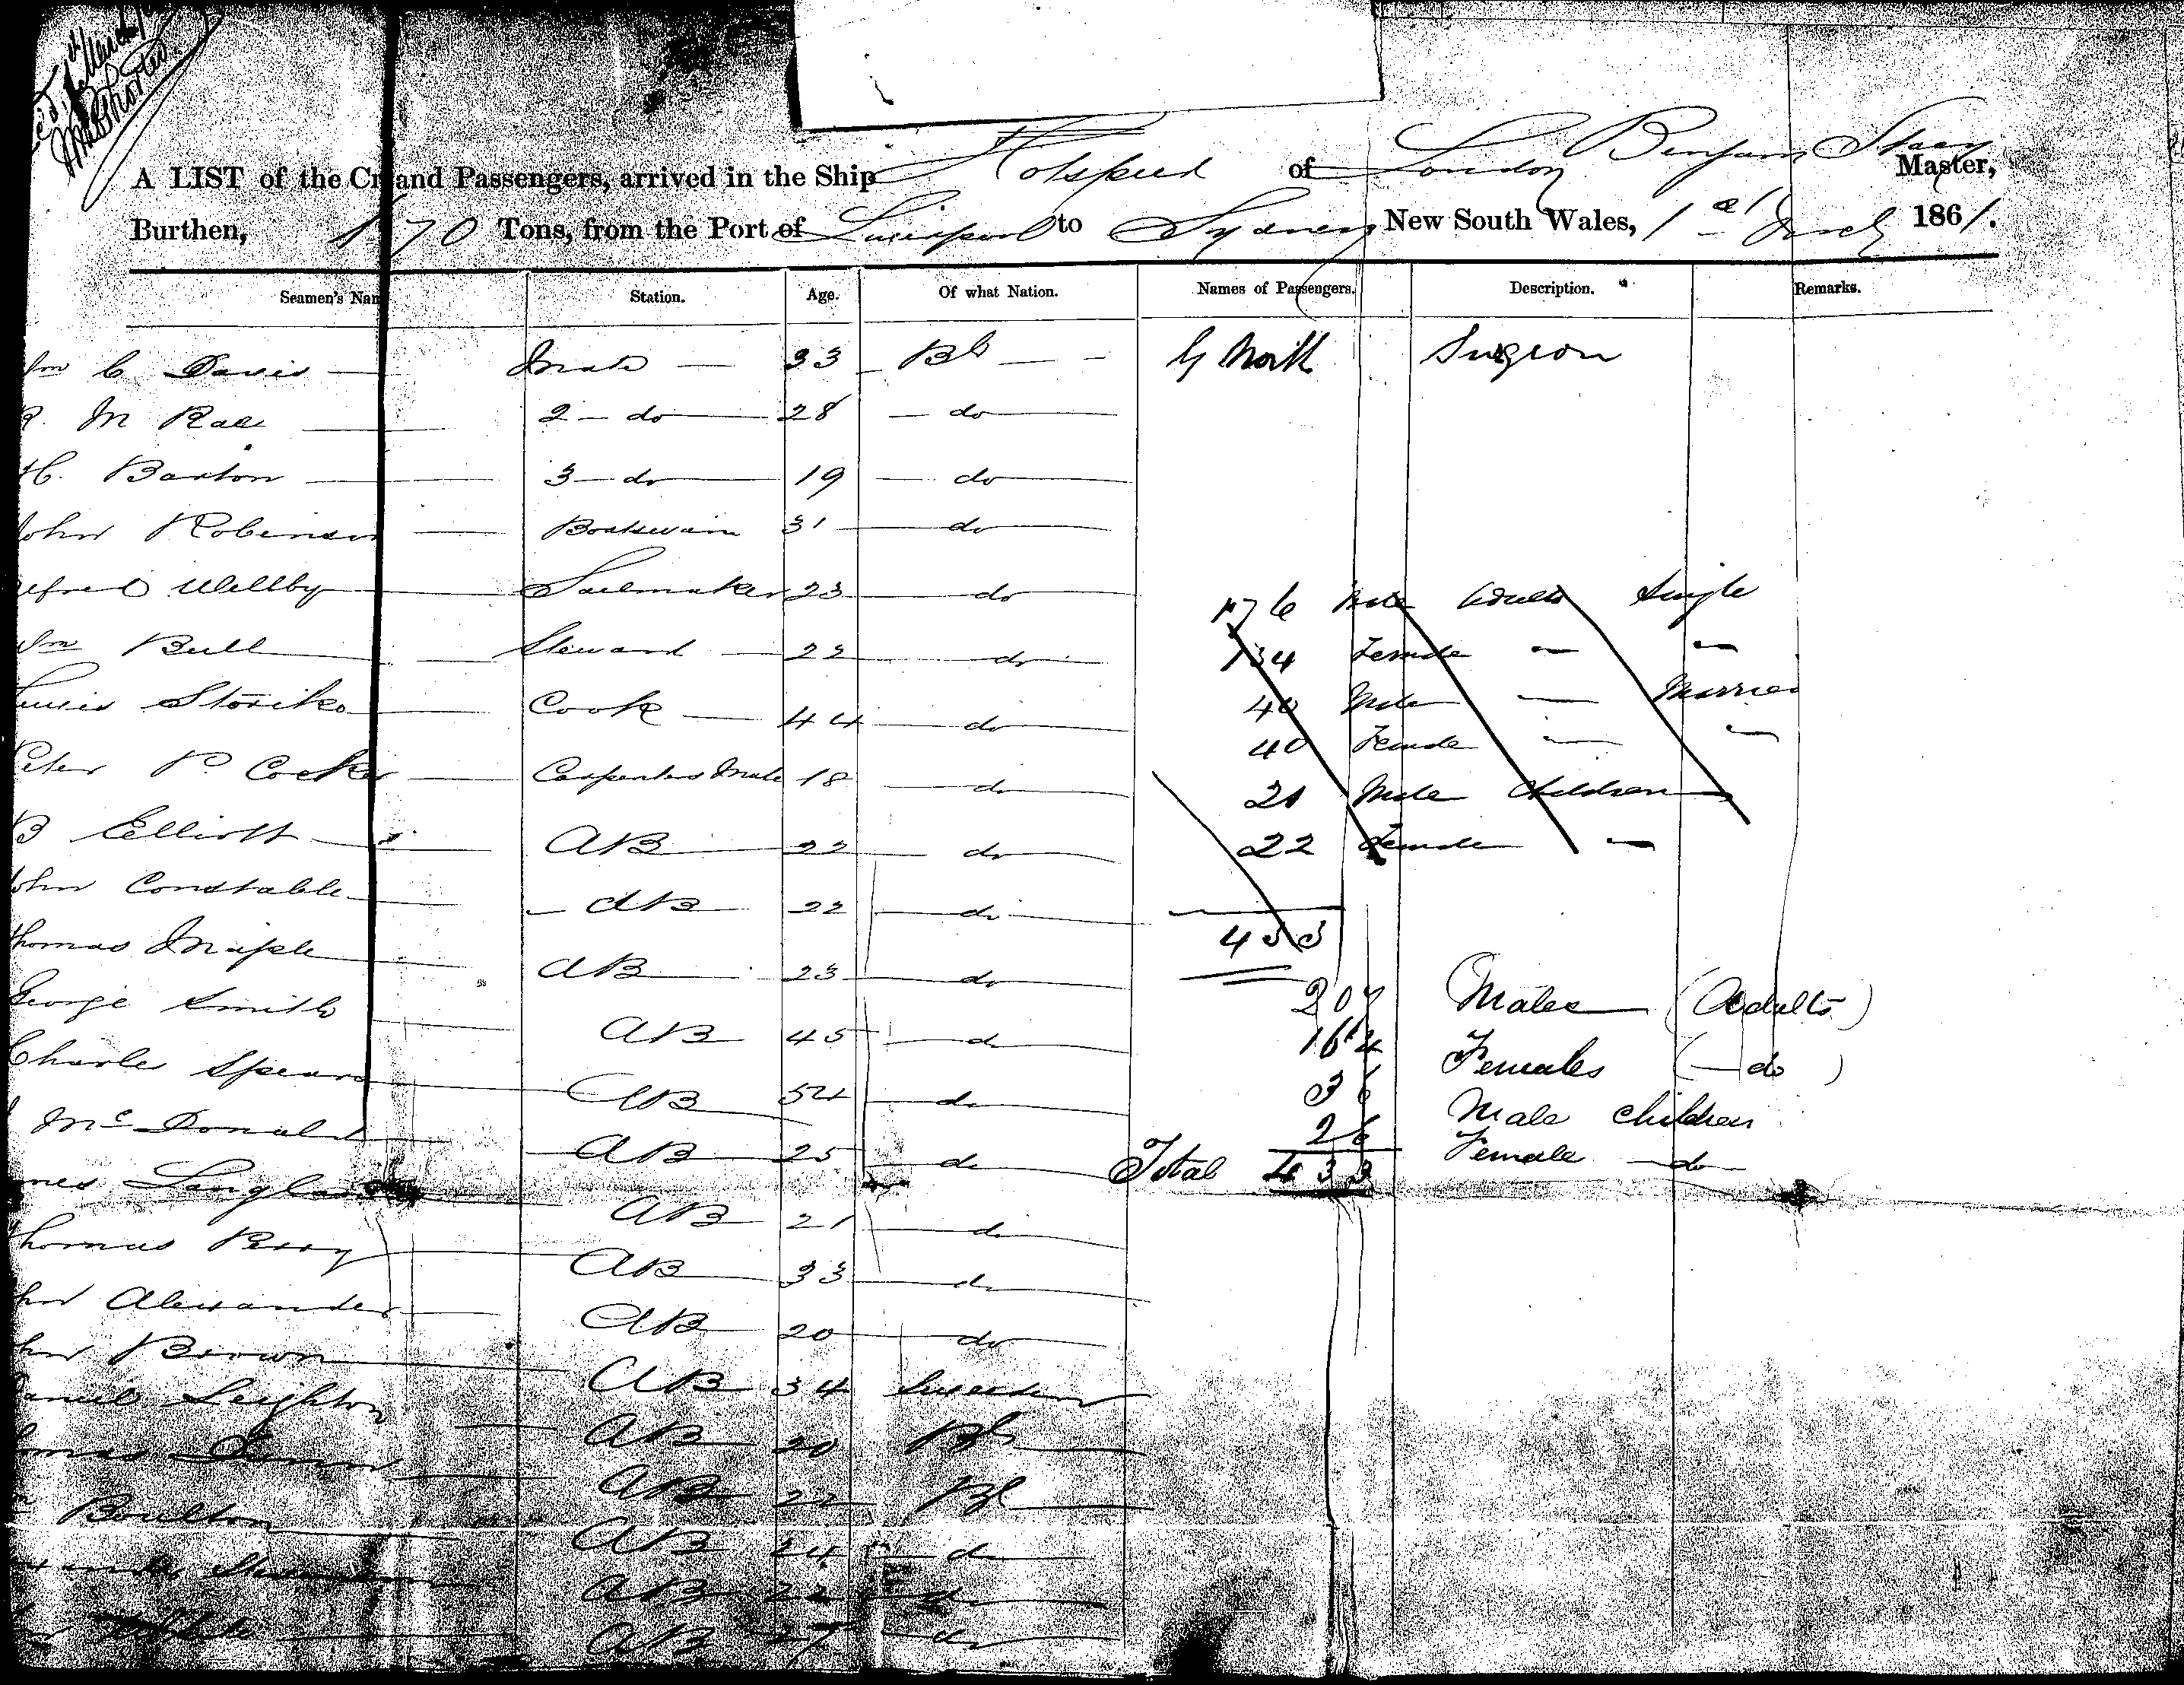 A LIST of the Crew and Passengers, arrived in the Ship Hotspur of London Benjamin Stacy Master,
Burthen, 70 Tons, from the Port of Liverpool to Sydney New South Wales, 1st March 1861.
Seamen's Nam Station. Age. Of what Nation. Names of Passengers. Description. Remarks.
Wm C Davis Mate 33 Bh G North Surgeon
R. M Rae 2 - do 28 do
H. Barton 3 - do 19 do
John Robinson Boatswain 31 do
Alfred Wellby Sailmaker 23 do 176 Male Adults Single
Wm Bull Steward 22 do 134 Female
Storiko Cook 44 do 40 Male Married
Peter P. Cocker Carpenters Mate 18 do 40 Female
B Elliott AB 22 do 21 Male Children
22 Female
John Constable AB 22 do
433
Thomas AB 23 do
207 Males (Adults)
George Smith AB 45 do
164 Females (do)
Charles Spears AB 54 do
36 Male Children
McDonald AB 25 do
26 Female do
Total 433
AB 21 do
Thomas Perry AB 33 do
Alexander AB 20 do
Brown AB 34 Sweden
Leighton AB 20 Bh
AB 22 Bh
Boulton AB 24 do
AB 22 do
AB 27 do